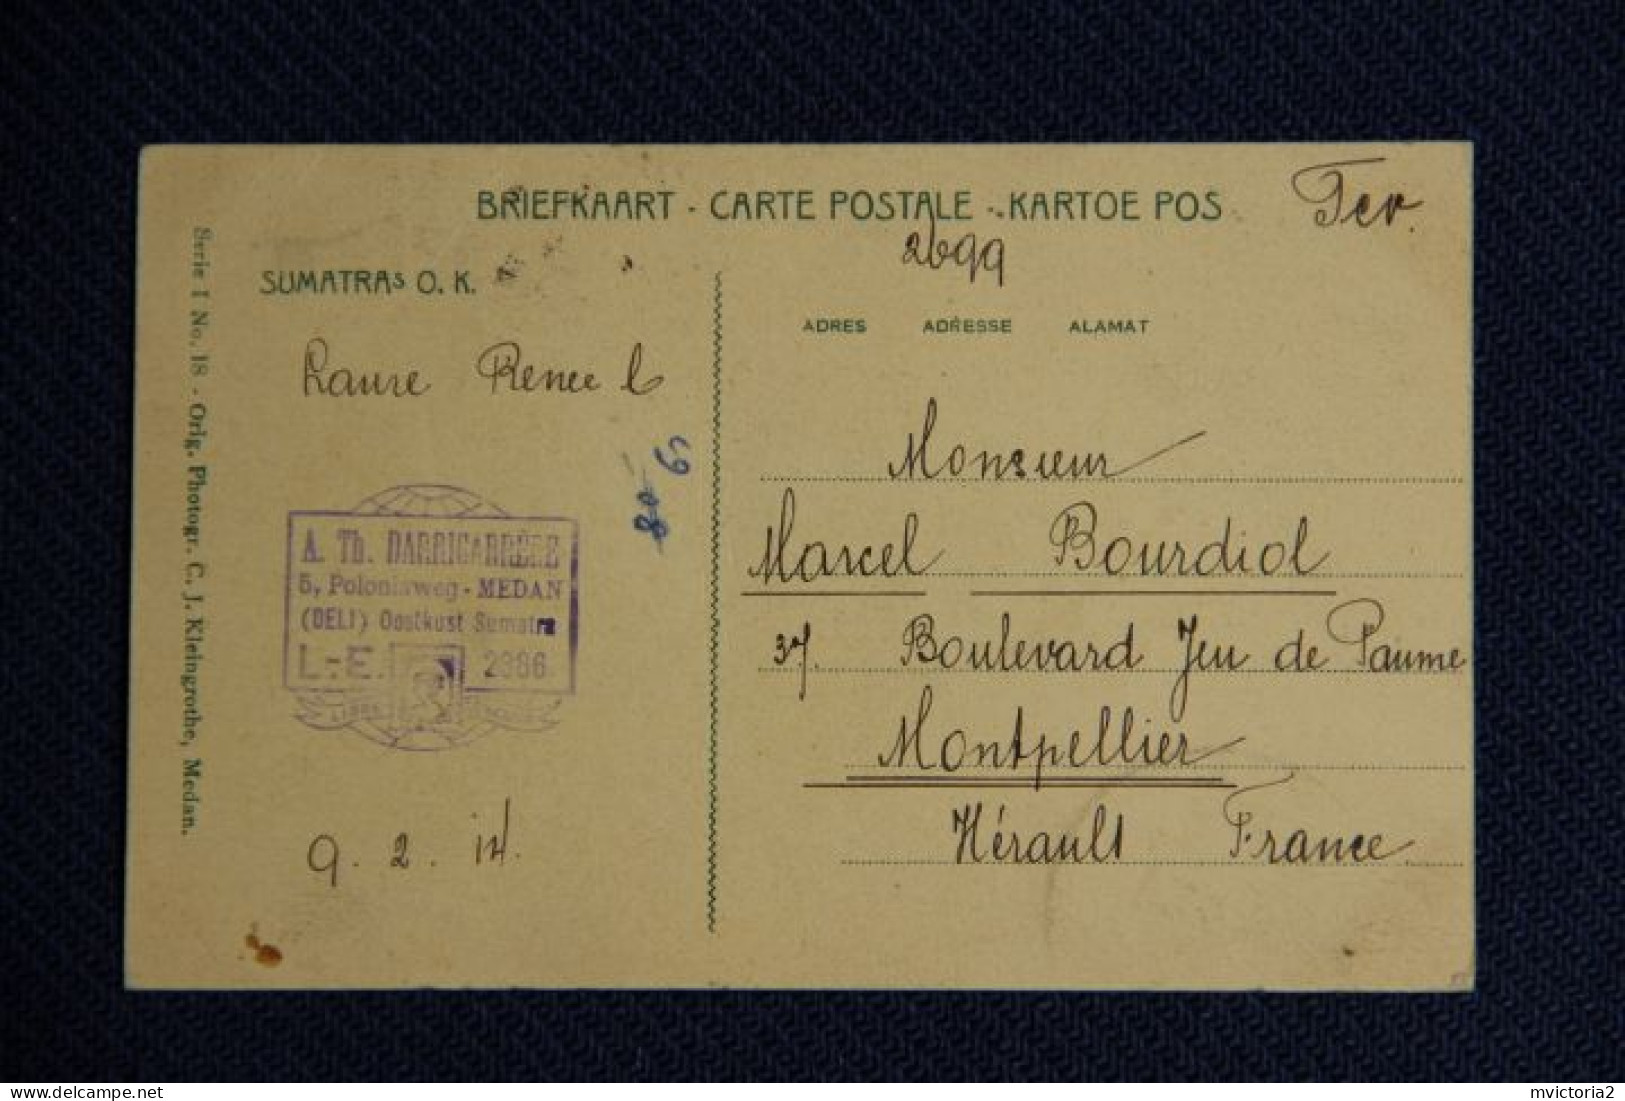 BRIEFKAART - CARTE POSTALE - KARTOE POS
Fev.
2699
SUMATRAs O. K.
ADRES ADRESSE ALAMAT
Laure Renee L
80
65
Monsieur
Marcel Bourdiol
37. Boulevard Jeu de Paume
Montpellier
Hérault France
A. Th. DARRICARRÈRE
5, Poloniaweg - MEDAN
(DELI) Oostkust Sumatra
L.-E. 2386
9. 2. 14.
Serie I No. 18 - Orig. Photogr. C. J. Kleingrothe, Medan.
mvictoria2